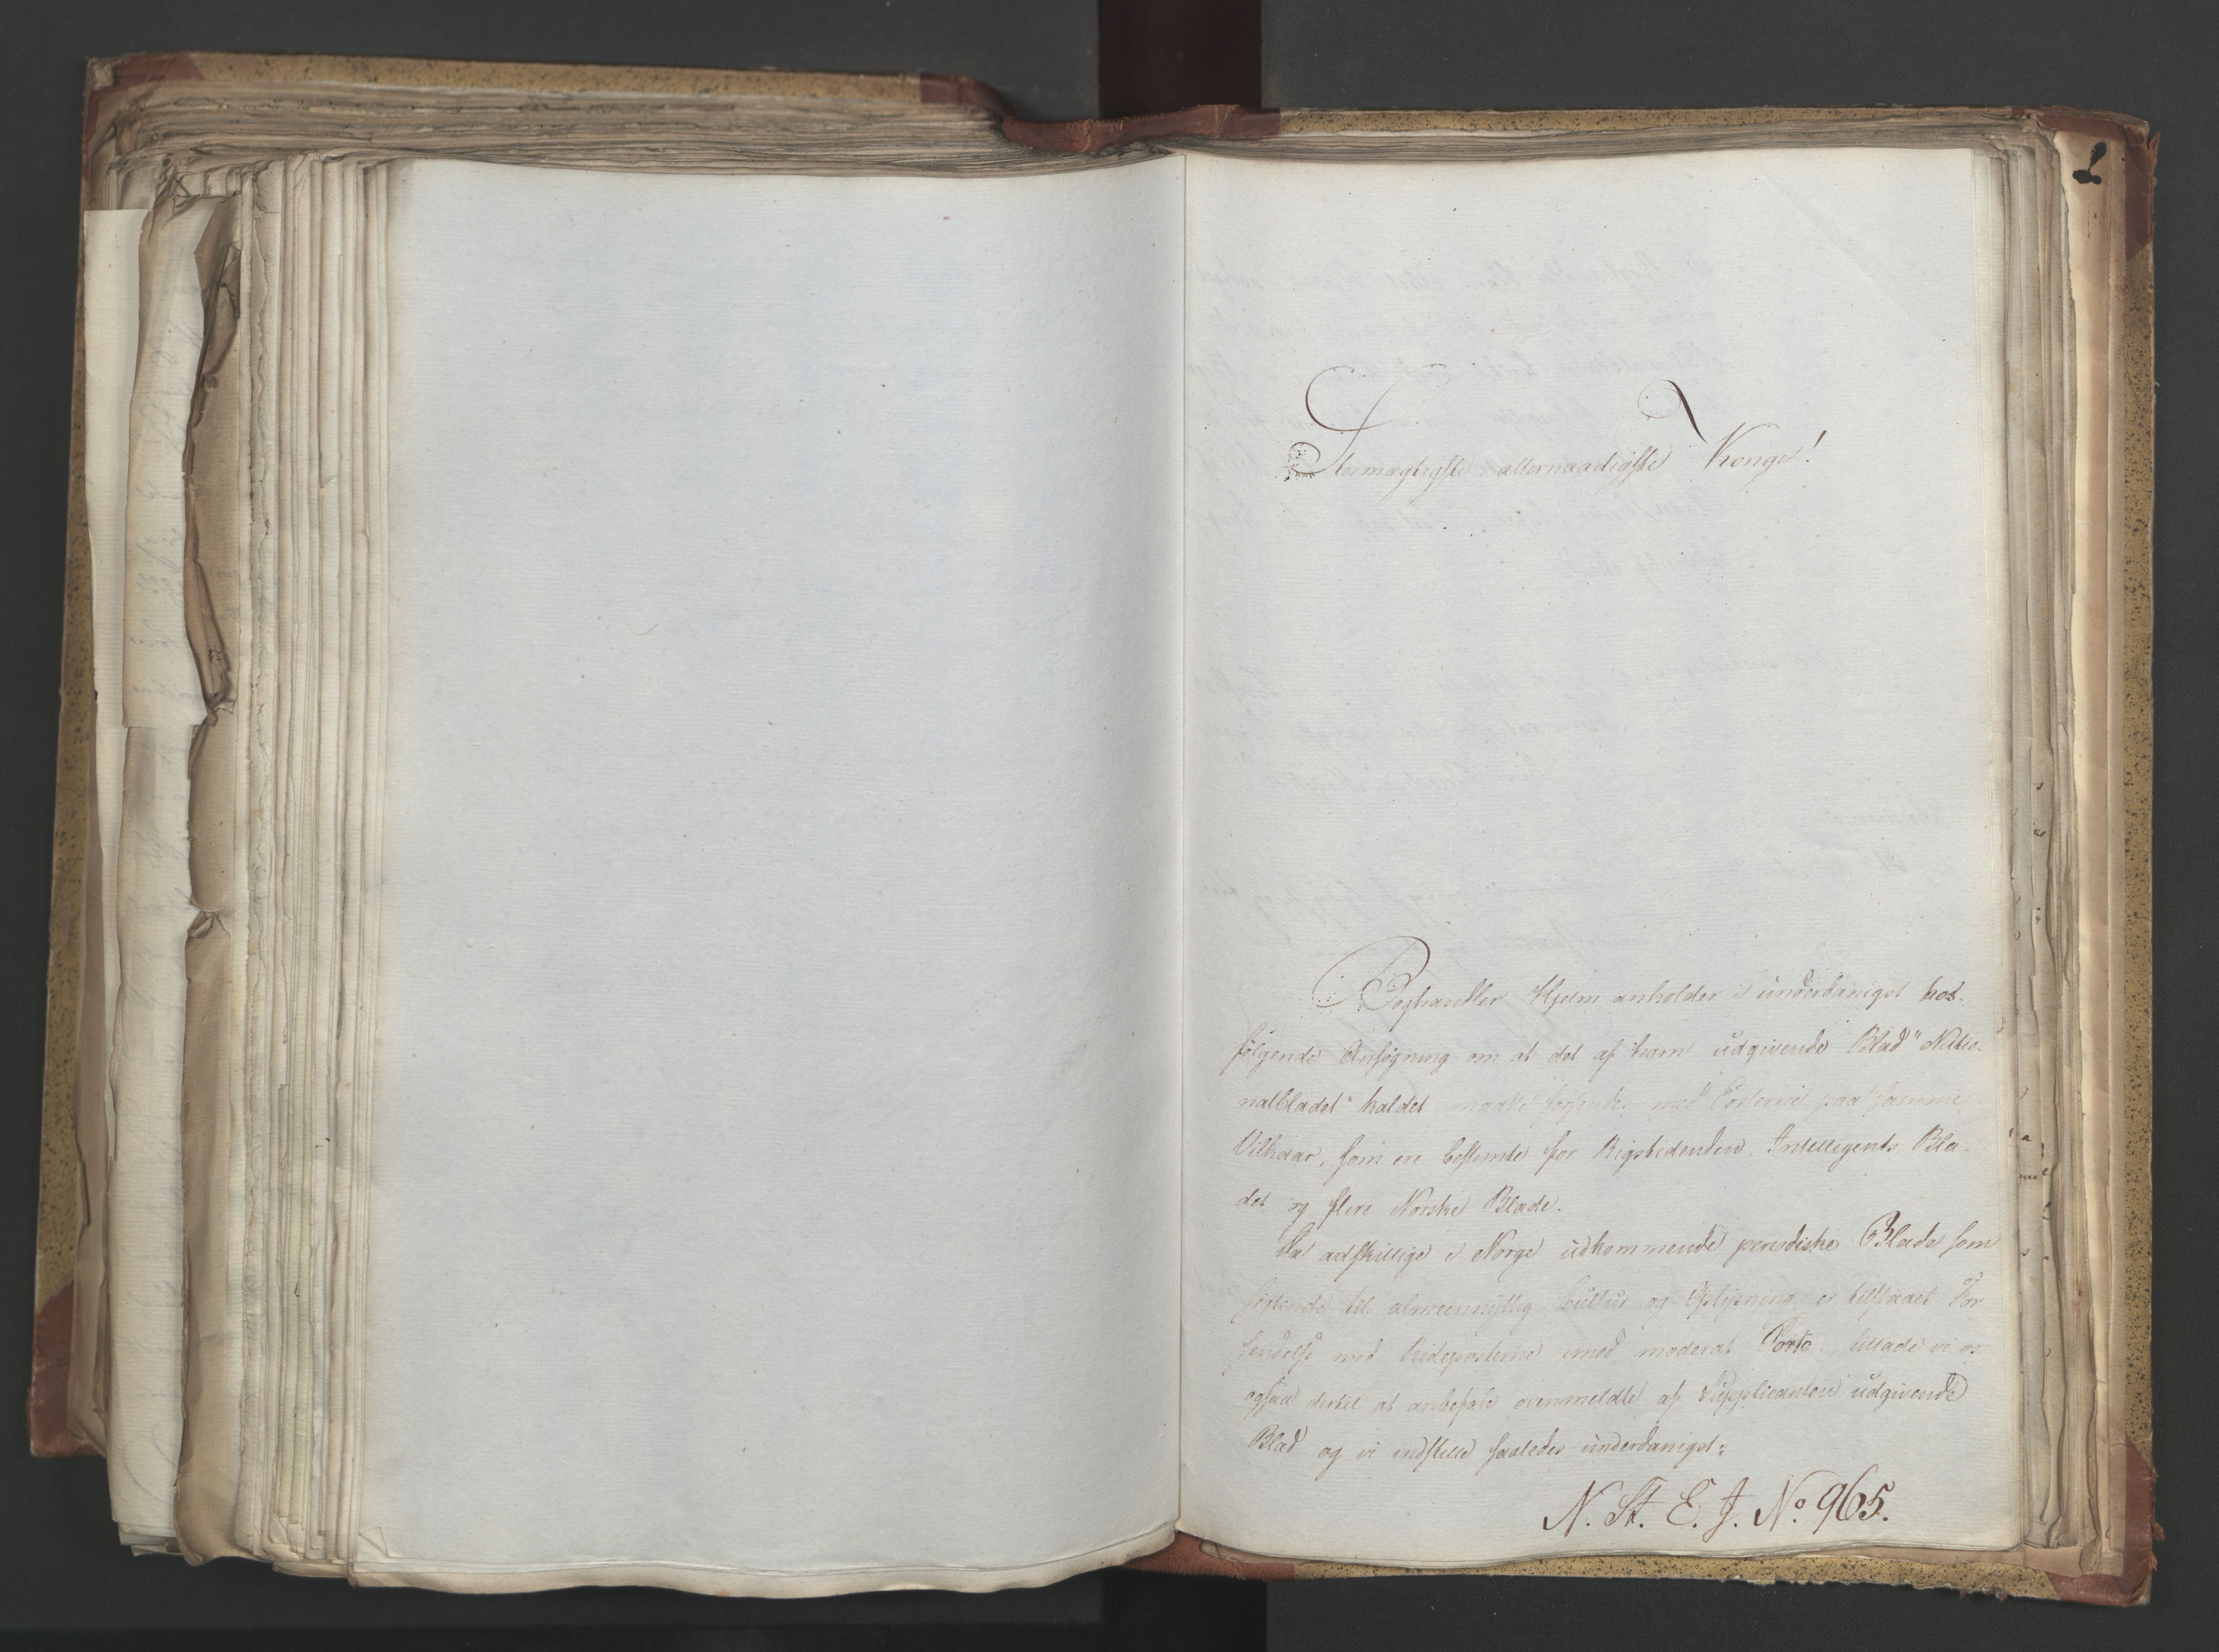 Stormægtigste allernaadigste Konge!
Boghandler Hjelm anholder i underdanigst hos-
følgende Ansøgning om at det af ham udgivende Blad "Natio-
nalbladet" kaldet maatte forsendes med Posterne paa samme
Vilkaar, som ere bestemte for Rigstidenden, Intelligents Bla-
det og flere Norske Blade.
Da adskillige i Norge udkommende periodiske Blade som
sigtende til almeennyttig Cultur og Oplysning er tilstaaet For
sendelse med Brevposterne imod moderat Porto, tillade vi os
ogsaa dertil at anbefale ovenmeldte af Supplicanten udgivende
Blad og vi indstille saaledes underdanigst:
N. St. E. J. No. 965.